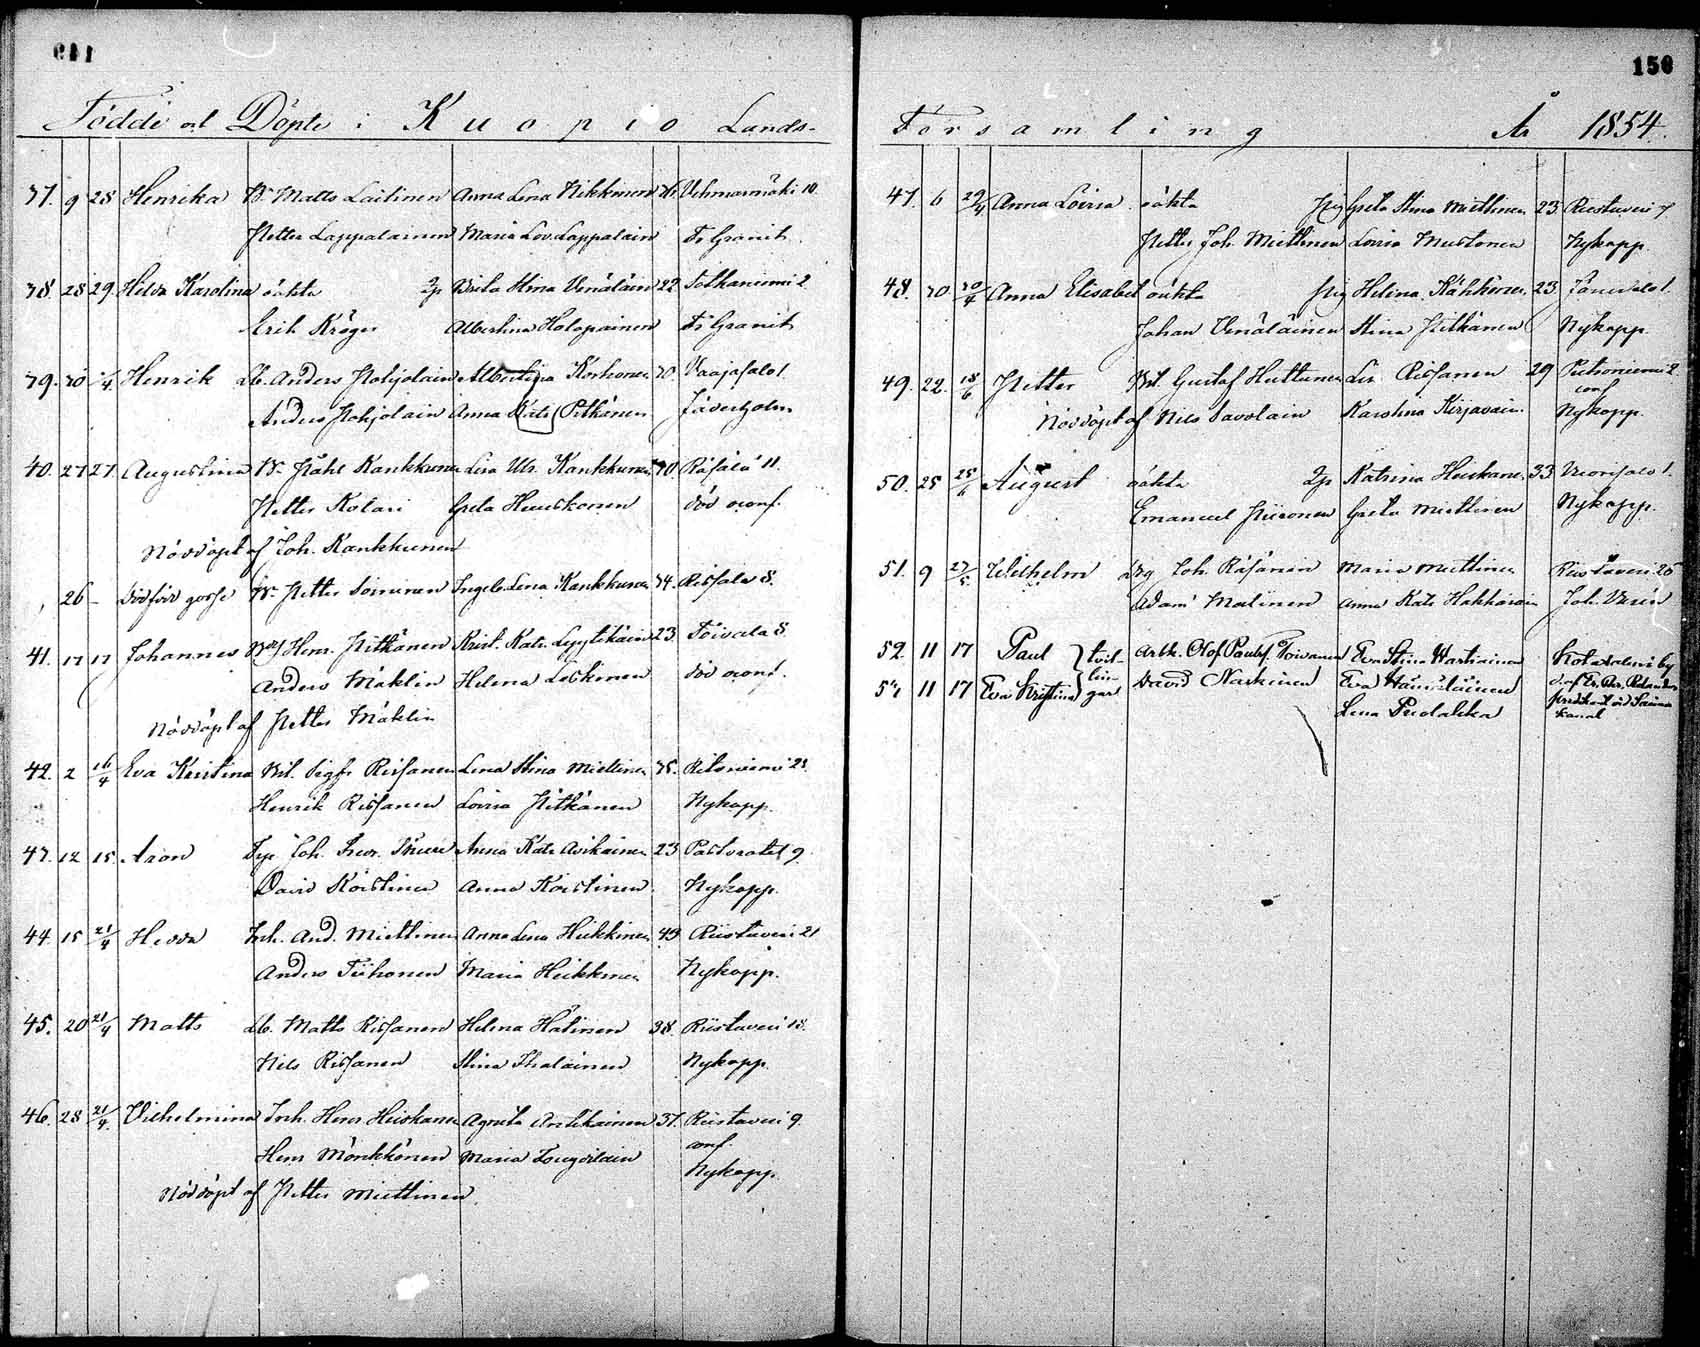 149
Födde och Döpte i Kuopio Lands-
37. 9 28 Henrika B. Matts Laitinen Anna Lena Hikkinen Vehmasmäki 10.
Petter Lappalainen Maria Lov. Lappalain Fr Granit
38. 28 29. Hedda Karolina oäkta Brita Stina Venäläin 22 Tolkaniemi 2
Erik Kröger Albertina Holopainen Fr Granit
39. 30 1/4 Henrik Lb. Anders Pohjolain Albertina Korhonen 30. Vaajasalo 1.
Anders Pohjolain Anna Kats Pitkänen Fäverholm
40. 27 27. Augustina B. Påhl Kankkunen Lisa Ulr. Kankkunen 40. Räsälä 11.
Petter Kolari Greta Huuskonen död oconf.
Nöddöpt af Joh. Kankkunen
26 – dödfödd gosse B. Petter Soininen Ingeb. Lena Kankkunen 34. Rissala 8.
41. 17 17 Johannes Hem. Pitkänen Krist. Katr. Lyytikäin 23 Toivala 8.
Anders Mäklin Helena Leskinen död oconf.
Nöddöpt af Petter Mäklin
42. 2 16/4 Eva Kristina Bd. Sigfr. Rissanen Lena Stina Miettinen 35. Ritoniemi 23.
Henrik Rissanen Lovisa Pitkänen Nykopp.
43. 12 15. Aron Joh. Anna Kats Asikainen 23 Pastoratet 9.
David Koistinen Anna Koistinen Nykopp.
44. 15 21/4 Hedda Inh. And. Miettinen Anna Lena Heikkinen 43 Riistavesi 21
Anders Tiihonen Maria Heikkinen Nykopp.
45. 20 21/4 Matts Lb. Matts Rissanen Helena Hätinen 38. Riistavesi 18.
Nils Rissanen Stina Ihalainen Nykopp.
46. 28 21/4. Vilhelmina Inh. Henr Heiskanen Agneta Antikainen 37. Riistavesi 9.
conf.
Henr Mönkkönen Maria Tougoilain Nykopp.
Nöddöpt af Petter Miettinen.
150
Församling År 1854.
47. 6 29/4 Anna Lovisa oäkta pig Greta Stina Miettinen 23 Riistavesi 7
Petter Joh. Miettinen Lovisa Mustonen Nykopp.
48. 30 30/4 Anna Elisabet oäkta pig Helena Kähkönen 23 Jänissalo 1.
Johan Venäläinen Stina Pitkänen Nykopp.
49. 22. 18/6 Petter Bd. Gustaf Huttunen Lis. Rissanen 29 Putroniemi 2
conf
Nöddöpt af Nils Savolain Karolina Kirjavain. Nykopp.
50. 25 25/6 August oäkta Katrina Heiskanen 33 Vuorisalo 1.
Emanuel Piironen Greta Miettinen Nykopp.
51. 9 27/5 Wilhelm Drg Joh. Räsänin Maria Miettinen Riistavesi 25
Adam Malinen Anna Kats Hakkarain Joh. Vesén
52. 11 17 Paul } tvil- Arb. Olof Paulss. Toivanen Eva Stina Martiainen Kotasalmi by
53. 11 17 Eva Kristina } lin- gar David Naskinen Eva Hämäläinen
Lena Pudakka predikant vid Saima
kanal